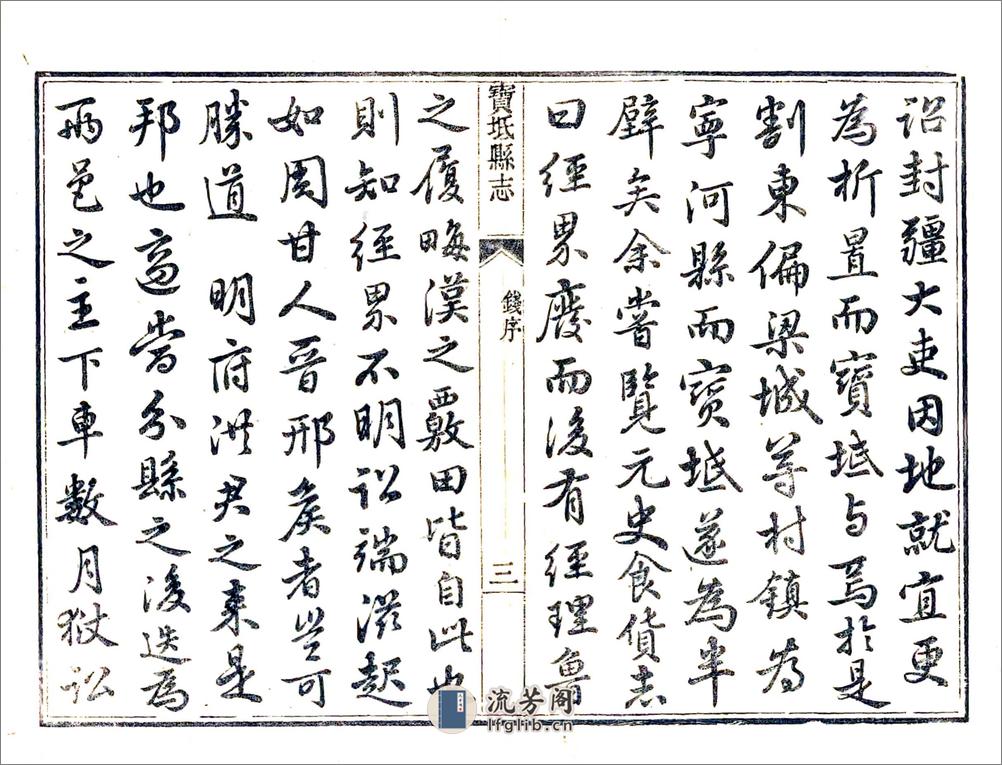 詔封疆大吏因地就宜更
為析置而寶坻与焉於是
割東偏梁城等村鎮為
寧河縣而寶坻遂為半
壁矣余嘗覽元史食貨志
曰經界廢而後有經理魯
寶坻縣志
錢序
三
之履畮漢之覈田皆自此也
則知經界不明訟端滋起
如周甘人晉邢矦者豈可
勝道 明府洪君之来是
邦也適當分縣之後迭為
兩邑之主下車數月獄訟
流芳阁
lfglib.cn